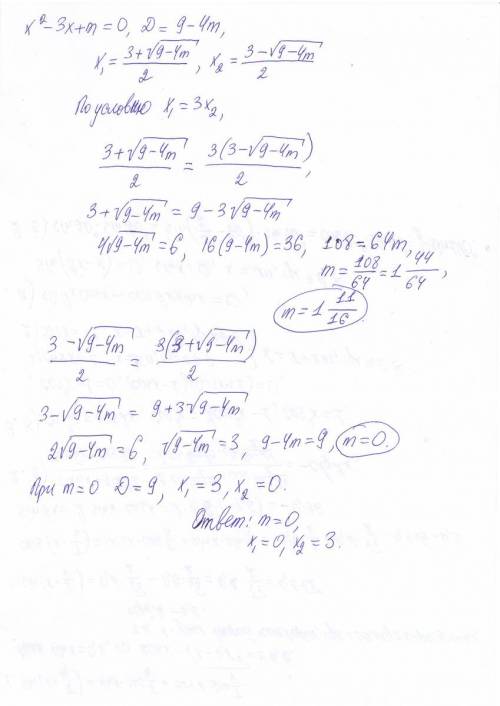 x² - 3x + m = 0, D = 9 - 4m,
x₁ = (3 + √(9 - 4m))/2, x₂ = (3 - √(9 - 4m))/2
По условию x₁ = 3x₂,
(3 + √(9 - 4m))/2 = 3(3 - √(9 - 4m))/2,
3 + √(9 - 4m) = 9 - 3√(9 - 4m)
4√(9 - 4m) = 6, 16(9 - 4m) = 36, 108 = 64m,
m = 108/64 = 1 44/64,
m = 1 11/16.
(3 - √(9 - 4m))/2 = 3(3 + √(9 - 4m))/2
3 - √(9 - 4m) = 9 + 3√(9 - 4m)
2√(9 - 4m) = 6, √(9 - 4m) = 3, 9 - 4m = 9, m = 0.
При m = 0 D = 9, x₁ = 3, x₂ = 0.
Ответ: m = 0,
x₁ = 0, x₂ = 3.